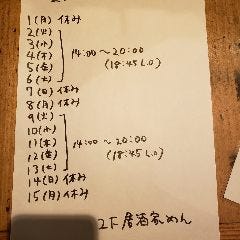 1(月) 休み
2(火)
3(水)
4(木) 14:00〜20:00
5(金) (18:45 L.O)
6(土)
7(日) 休み
8(月) 休み
9(火)
10(水)
11(木) 14:00〜20:00
12(金) (18:45 L.O)
13(土)
14(日) 休み
15(月) 休み
2F 居酒家めん